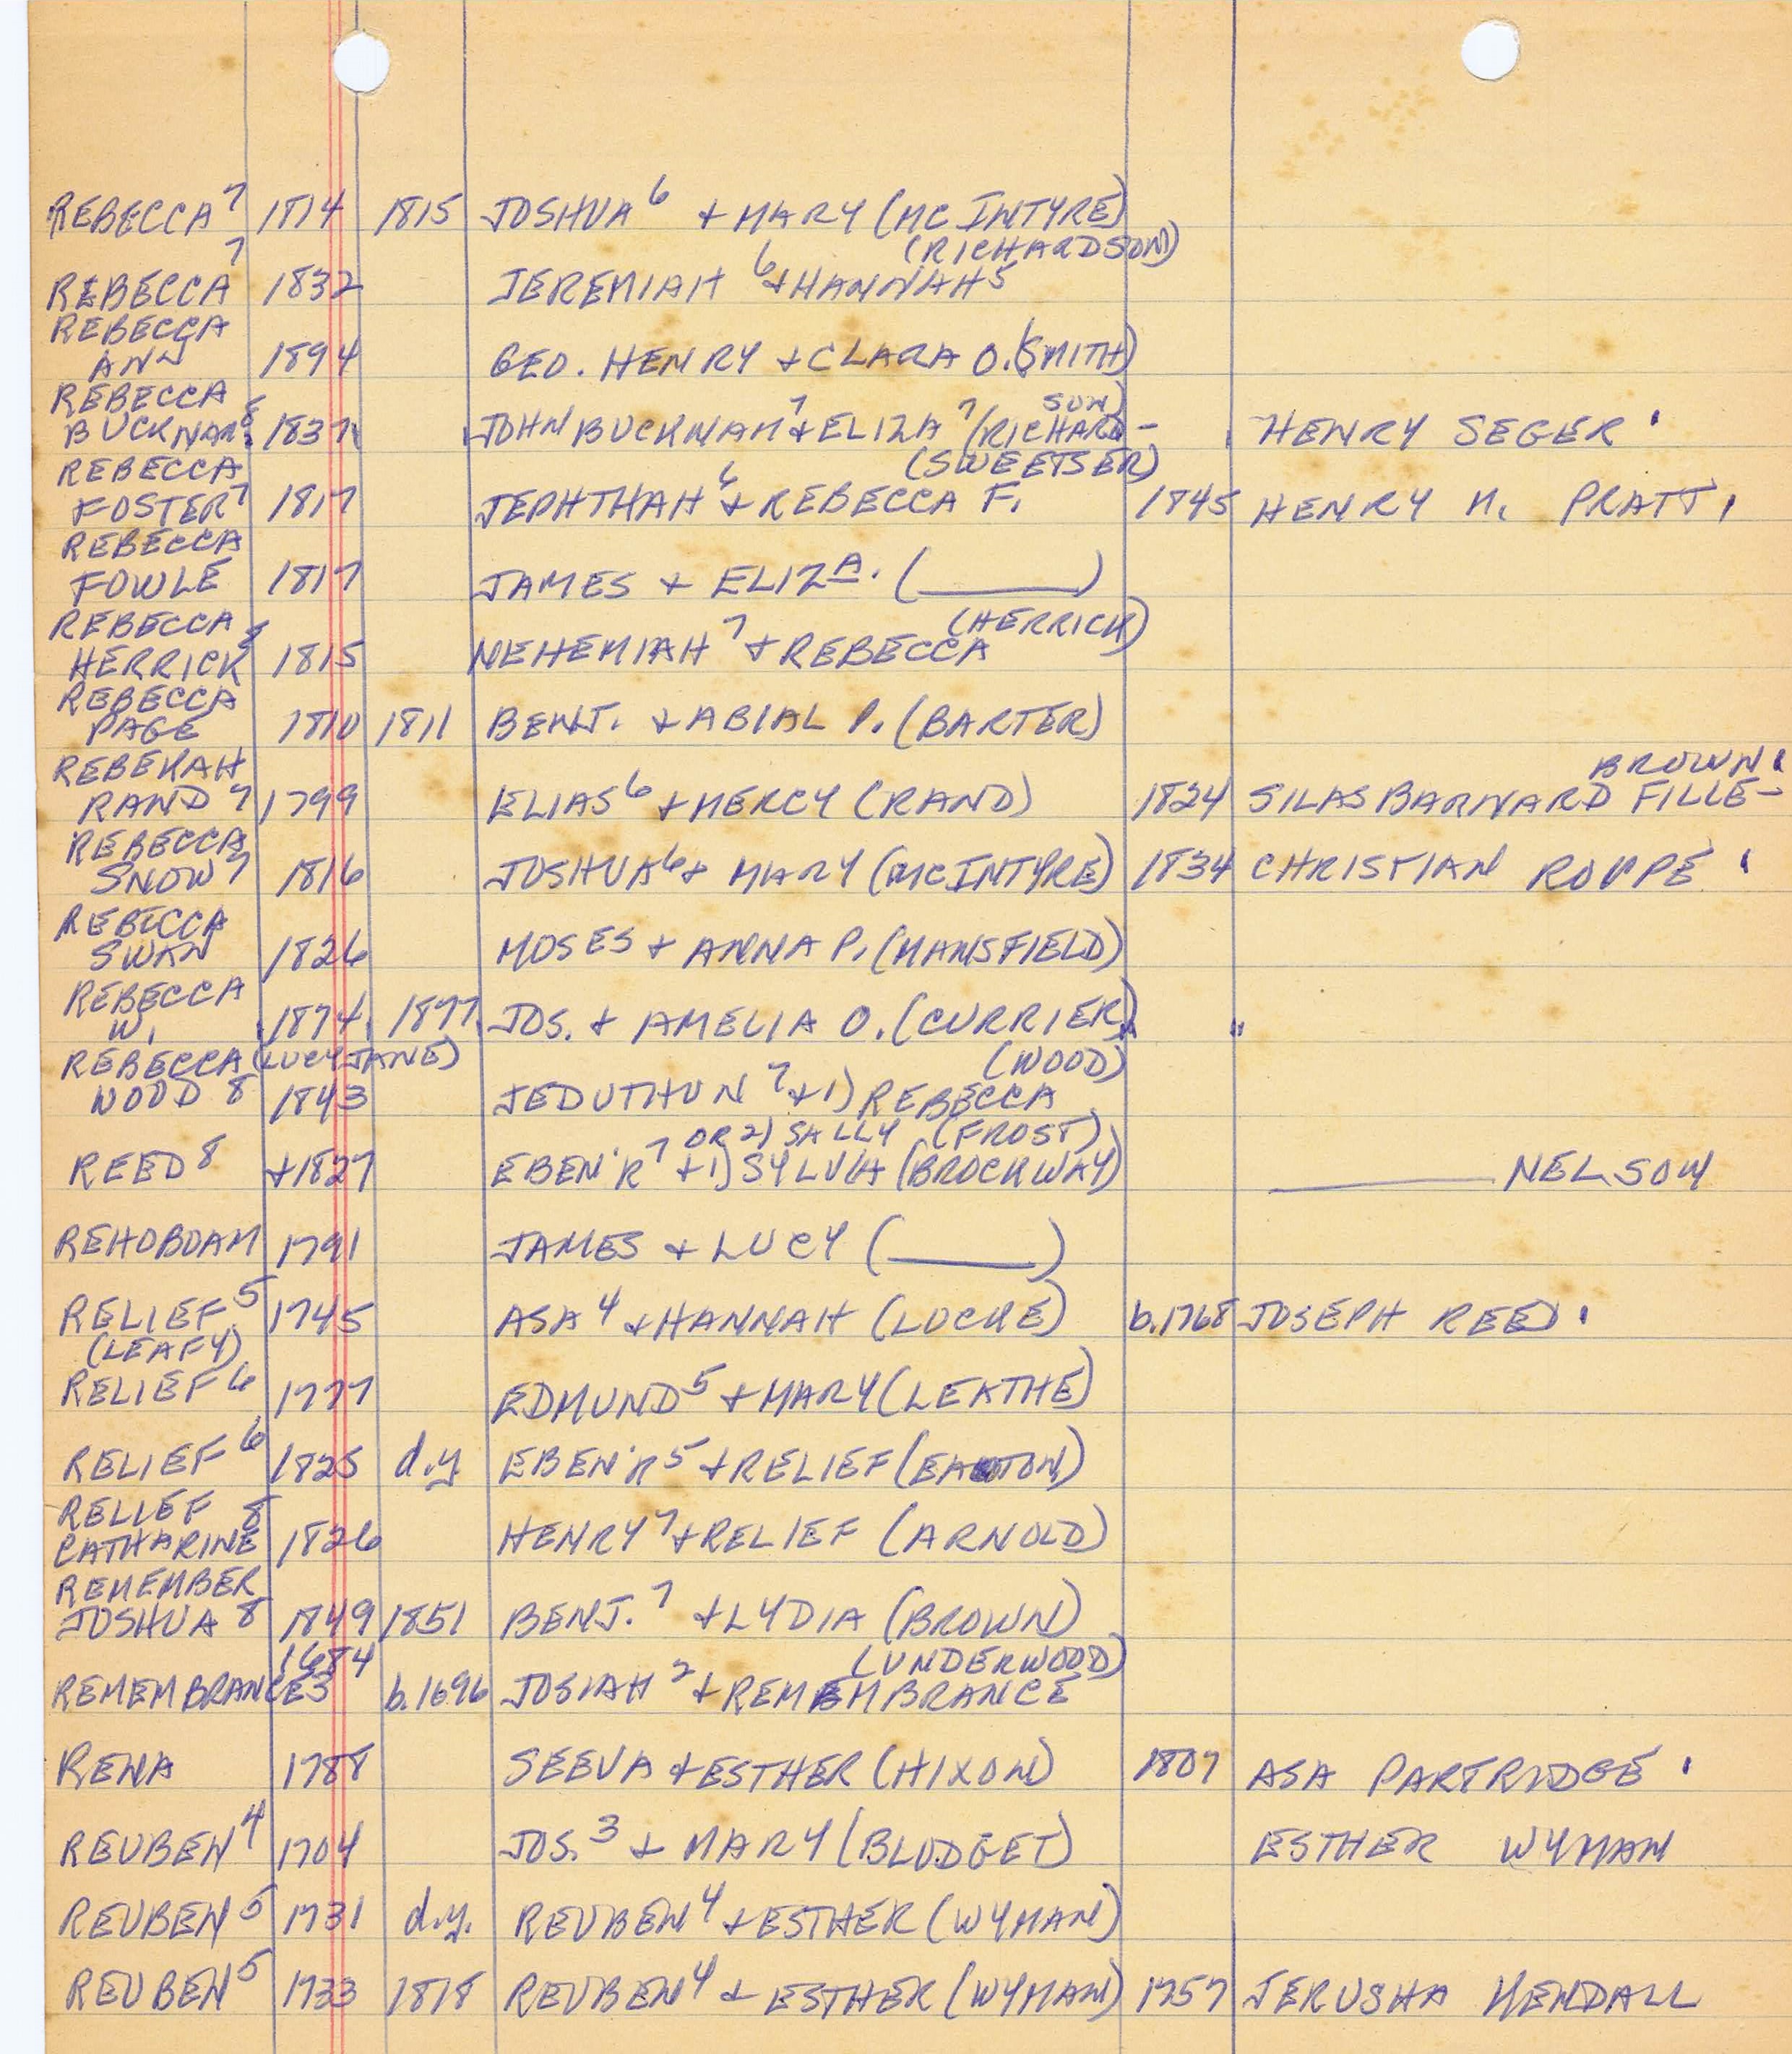 REBECCA⁷ 1814 1815 JOSHUA⁶ + MARY (MCINTYRE)
(RICHARDSON)
REBECCA⁷ 1832 JEREMIAH⁶ + HANNAH⁵
REBECCA
ANN 1894 GEO. HENRY + CLARA O. (SMITH)
REBECCA SON)
BUCKNAM⁸ 1837 JOHN BUCKNAM⁷ + ELIZA⁷ (RICHARD- HENRY SEGER
REBECCA (SWEETSER)
FOSTER⁷ 1817 JEPHTHAH⁶ + REBECCA F. 1845 HENRY M. PRATT
REBECCA
FOWLE 1817 JAMES + ELIZA. (______)
REBECCA (HERRICK)
HERRICK⁸ 1815 NEHEMIAH⁷ + REBECCA
REBECCA
PAGE 1810 1811 BENJ. + ABIAL P. (BARTER)
REBEKAH BROWN
RAND⁷ 1799 ELIAS⁶ + MERCY (RAND) 1824 SILAS BARNARD FILLE-
REBECCA
SNOW⁷ 1816 JOSHUA⁶ + MARY (MCINTYRE) 1834 CHRISTIAN ROUPE
REBECCA
SWAN 1826 MOSES + ANNA P. (MANSFIELD)
REBECCA
W. 1874 1877 JOS. + AMELIA O. (CURRIER) "
REBECCA (LUCY JANE) (WOOD)
WOOD 8 1843 JEDUTHUN⁷ + 1) REBECCA
OR 2) SALLY (FROST)
REED⁸ +1827 EBEN'R⁷ + 1) SYLVIA (BROCKWAY) ______ NELSON
REHOBOAM 1791 JAMES + LUCY (______)
RELIEF⁵ 1745 ASA⁴ + HANNAH (LOCKE) b.1768 JOSEPH REED
(LEAFY)
RELIEF⁶ 1777 EDMUND⁵ + MARY (LEATHE)
RELIEF⁶ 1825 d.y. EBEN'R⁵ + RELIEF (EATON)
RELIEF
CATHARINE⁸ 1826 HENRY⁷ + RELIEF (ARNOLD)
REMEMBER
JOSHUA⁸ 1849 1851 BENJ.⁷ + LYDIA (BROWN)
1684 (UNDERWOOD)
REMEMBRANCE³ b.1696 JOSIAH² + REMEMBRANCE
RENA 1788 SEEVA + ESTHER (HIXON) 1807 ASA PARTRIDGE
REUBEN⁴ 1704 JOS.³ + MARY (BLODGET) ESTHER WYMAN
REUBEN⁵ 1731 d.y. REUBEN⁴ + ESTHER (WYMAN)
REUBEN⁵ 1733 1818 REUBEN⁴ + ESTHER (WYMAN) 1757 JERUSHA KENDALL